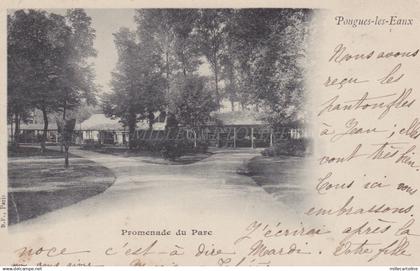 Pougues-les-Eaux
Nous avons
reçu les
pantoufles
à Jean; elles
vont très bien
Tous ici vous
embrassons
J'écrirai après la
noce c'est-à dire Mardi. Votre fille
Promenade du Parc
B.F., Paris